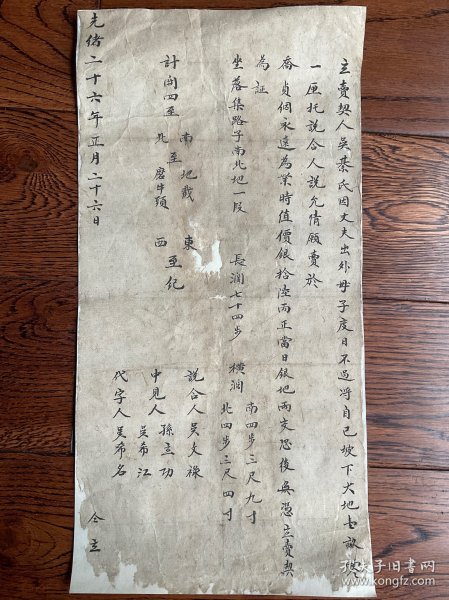 立賣契人吳蔡氏因丈夫出外母子度日不過將自己坡下大地七畝
一厘托說合人說允情願賣於
喬貞個永遠為業時值價銀拾陸兩正當日銀地兩交恐後無憑立賣契
為証
坐落集路子南北地一段 長濶七十四步 橫濶 南四步三尺九寸 北四步三尺四寸
計開四至 南至地戴 北至唐牛頭 東西至紀
說合人吳文祿
中見人孫立功
吳希江
代字人吳希名
光緒二十六年正月二十六日 仝立
孔夫子旧书网
kongfz.com